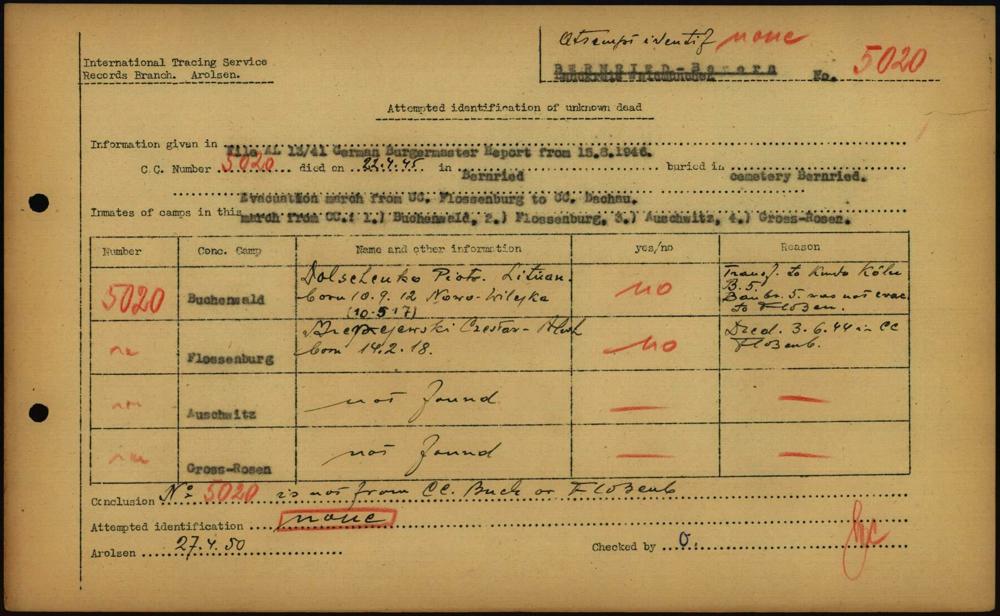 Attempt identif none
International Tracing Service
Records Branch. Arolsen.
BERNRIED-Bayern
No. 5020
Attempted identification of unknown dead
Information given in File AL 13/41 German Burgermaster Report from 15.8.1946.
C.C. Number 5020 died on 22.4.45 in Bernried buried in cemetery Bernried.
Evacuation march from CC. Flossenburg to CC. Dachau.
Inmates of camps in this march from CC.: 1.) Buchenwald, 2.) Flossenburg, 3.) Auschwitz, 4.) Gross-Rosen.
Number Conc. Camp Name and other information yes/no Reason
5020 Buchenwald Dolschenko Piotr. Lituan. no Transf. to Kmdo Köln
born 10.9.12 Nowo-Wilejka B.5.
(10.5.17) Baubr. 5. was not evac.
to Floßen.
Flossenburg no Died. 3.6.44 in CC
born 14.2.18. Floßenb.
Auschwitz not found
Gross-Rosen not found
Conclusion No 5020 is not from CC. Buch or Floßenb
Attempted identification none
Arolsen 27.4.50
Checked by O.